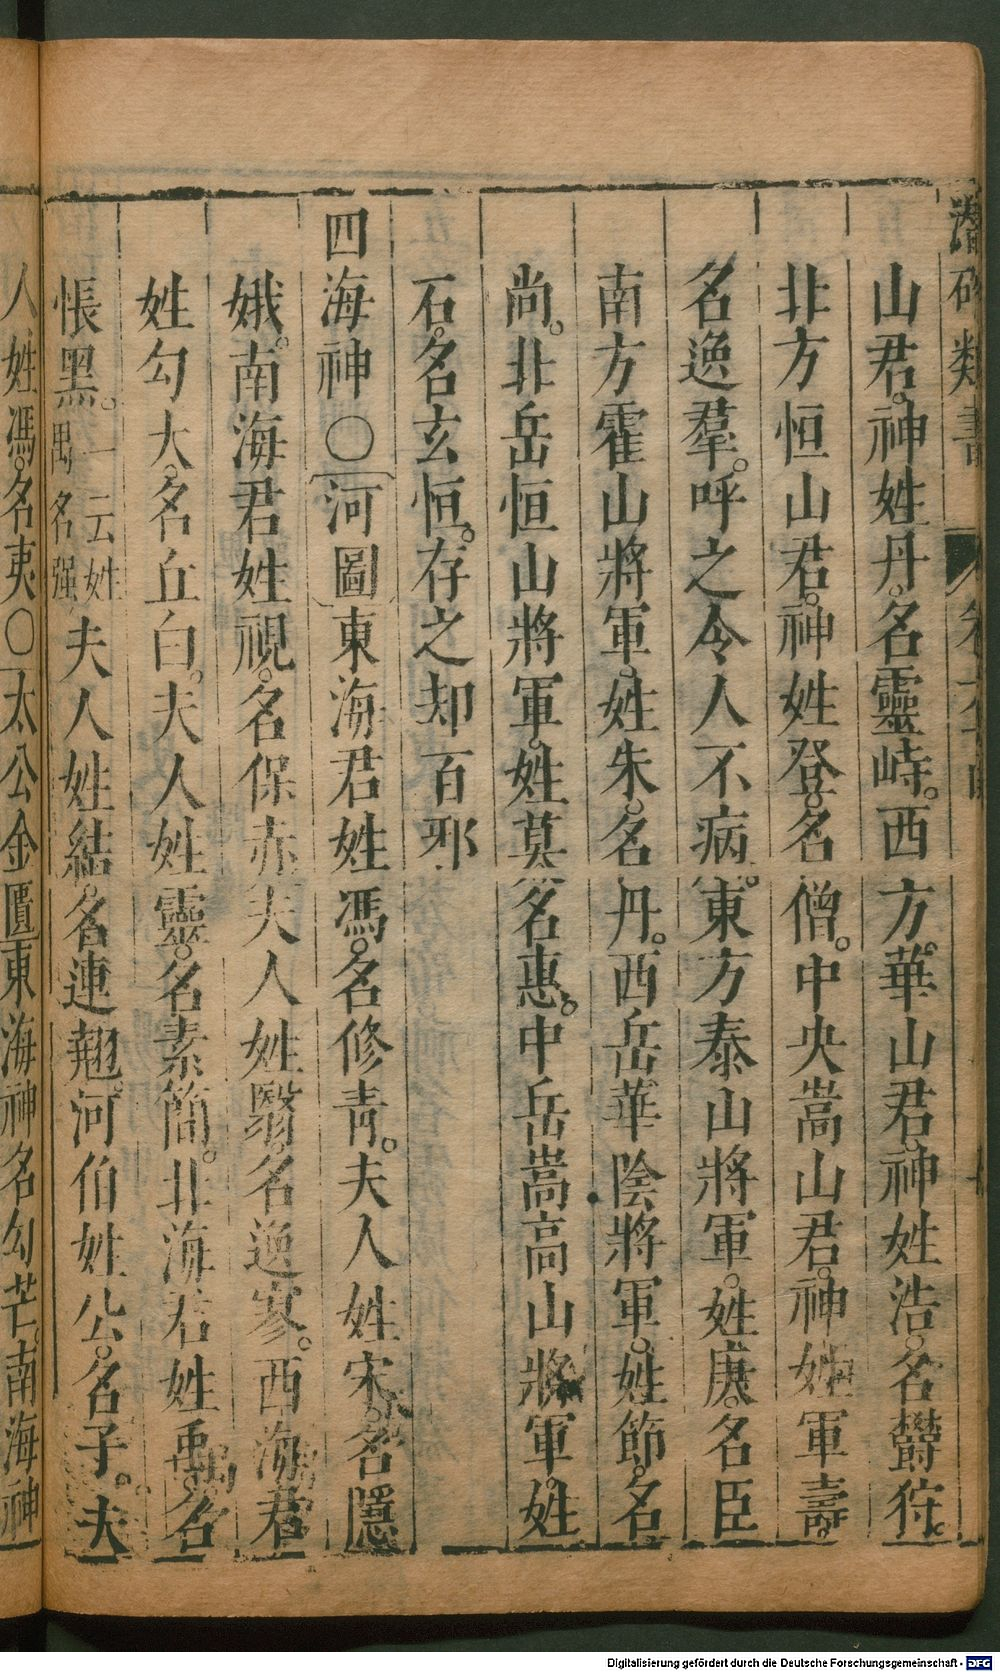 潛確類書
山君。神姓丹。名靈峙。西方。華山君。神姓浩。名欝狩。
北方恒山君。神姓登。名僧。中央嵩山君。神姓軍壽。
名逸羣。呼之令人不病。東方泰山將軍。姓庚。名臣
南方霍山將軍。姓朱。名丹。西岳華陰將軍。姓節。名
尚。北岳恒山將軍。姓莫。名惠。中岳嵩高山將軍。姓
石。名玄恒。存之却百邪
四海神〇河圖東海君姓馮。名修青。夫人姓宋。名隱
娥。南海君姓視。名保赤。夫人姓翳。名逸寥。西海君
姓勾大。名丘白。夫人姓靈。名素簡。北海君姓禹。名
悵黑。一云姓禺名强夫人姓結。名連翹。河伯姓公。名子。夫
人姓馮。名夷〇太公金匱東海神名勾芒。南海神
Digitalisierung gefördert durch die Deutsche Forschungsgemeinschaft - DFG